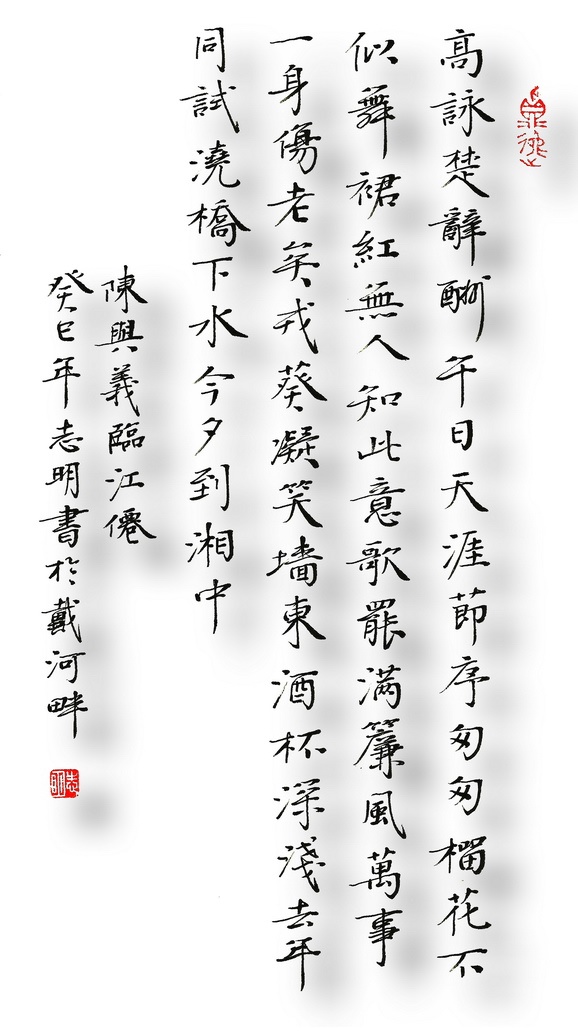 高詠楚辭酬午日天涯節序匆匆榴花不
似舞裙紅無人知此意歌罷满簾風萬事
一身傷老矣戎葵凝笑墙東酒杯深淺去年
同試澆橋下水今夕到湘中
陳與義臨江僊
癸巳年志明書於戴河畔
志明